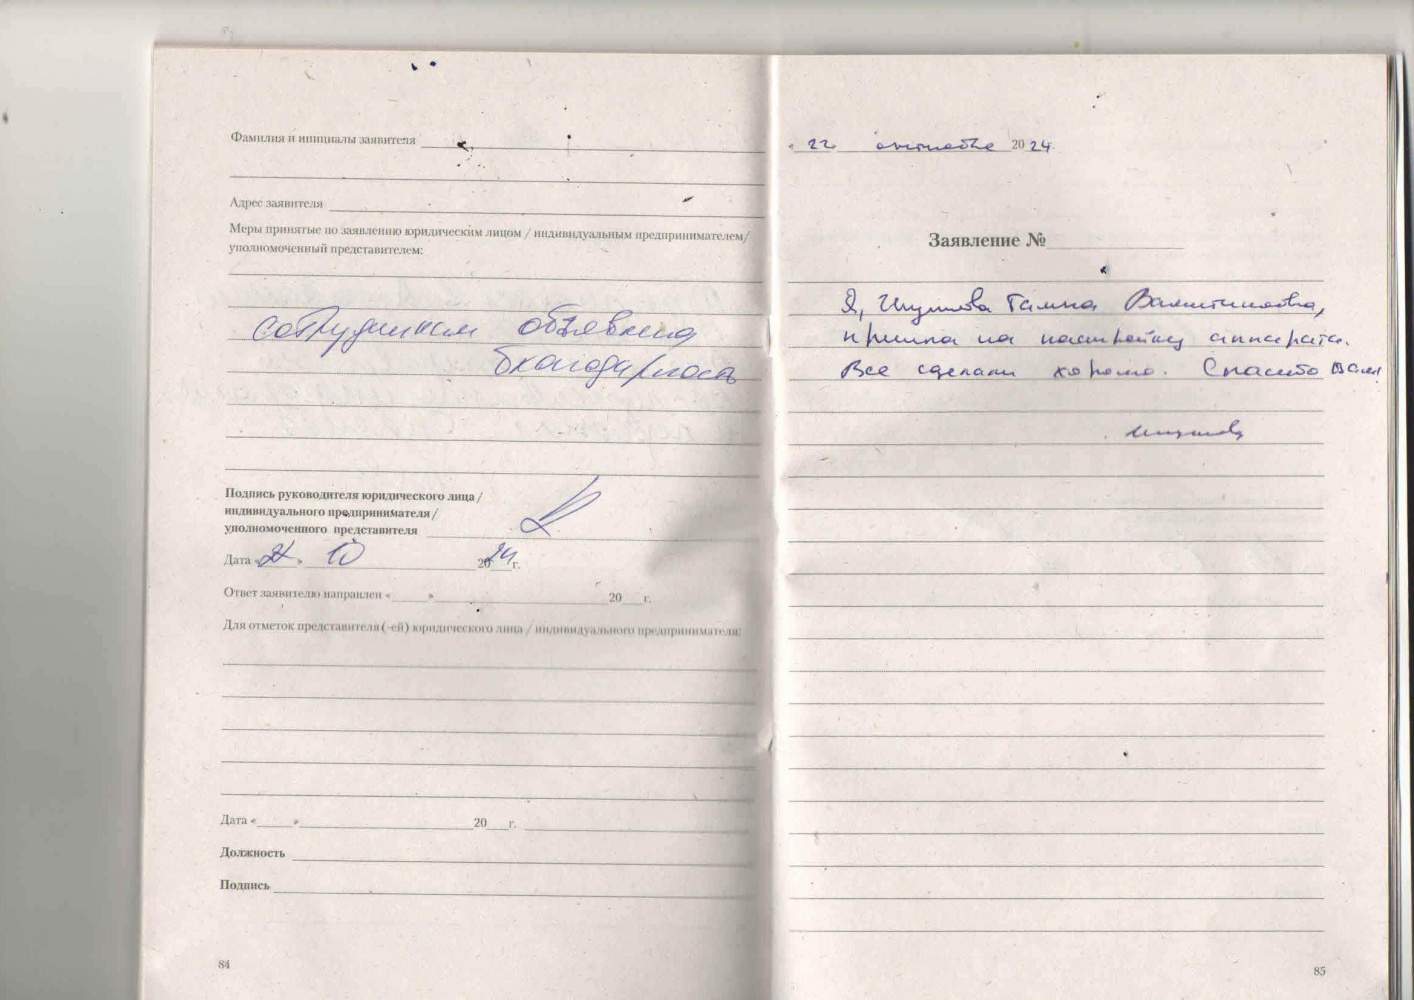 Фамилия и инициалы заявителя
Адрес заявителя
Меры принятые по заявлению юридическим лицом / индивидуальным предпринимателем/
уполномоченный представителем:
сотрудникам объявлена
благодарность
Подпись руководителя юридического лица /
индивидуального предпринимателя /
уполномоченного представителя
Дата « » 10 2024 г.
Ответ заявителю направлен « » 20 г.
Для отметок представителя (-ей) юридического лица / индивидуального предпринимателя:
Дата « » 20 г.
Должность
Подпись
84
« 22 октября 2024.
Заявление №
Я, Галина Валентиновна,
пришла на настройку аппарата.
Все сделали хорошо. Спасибо Вам!
85